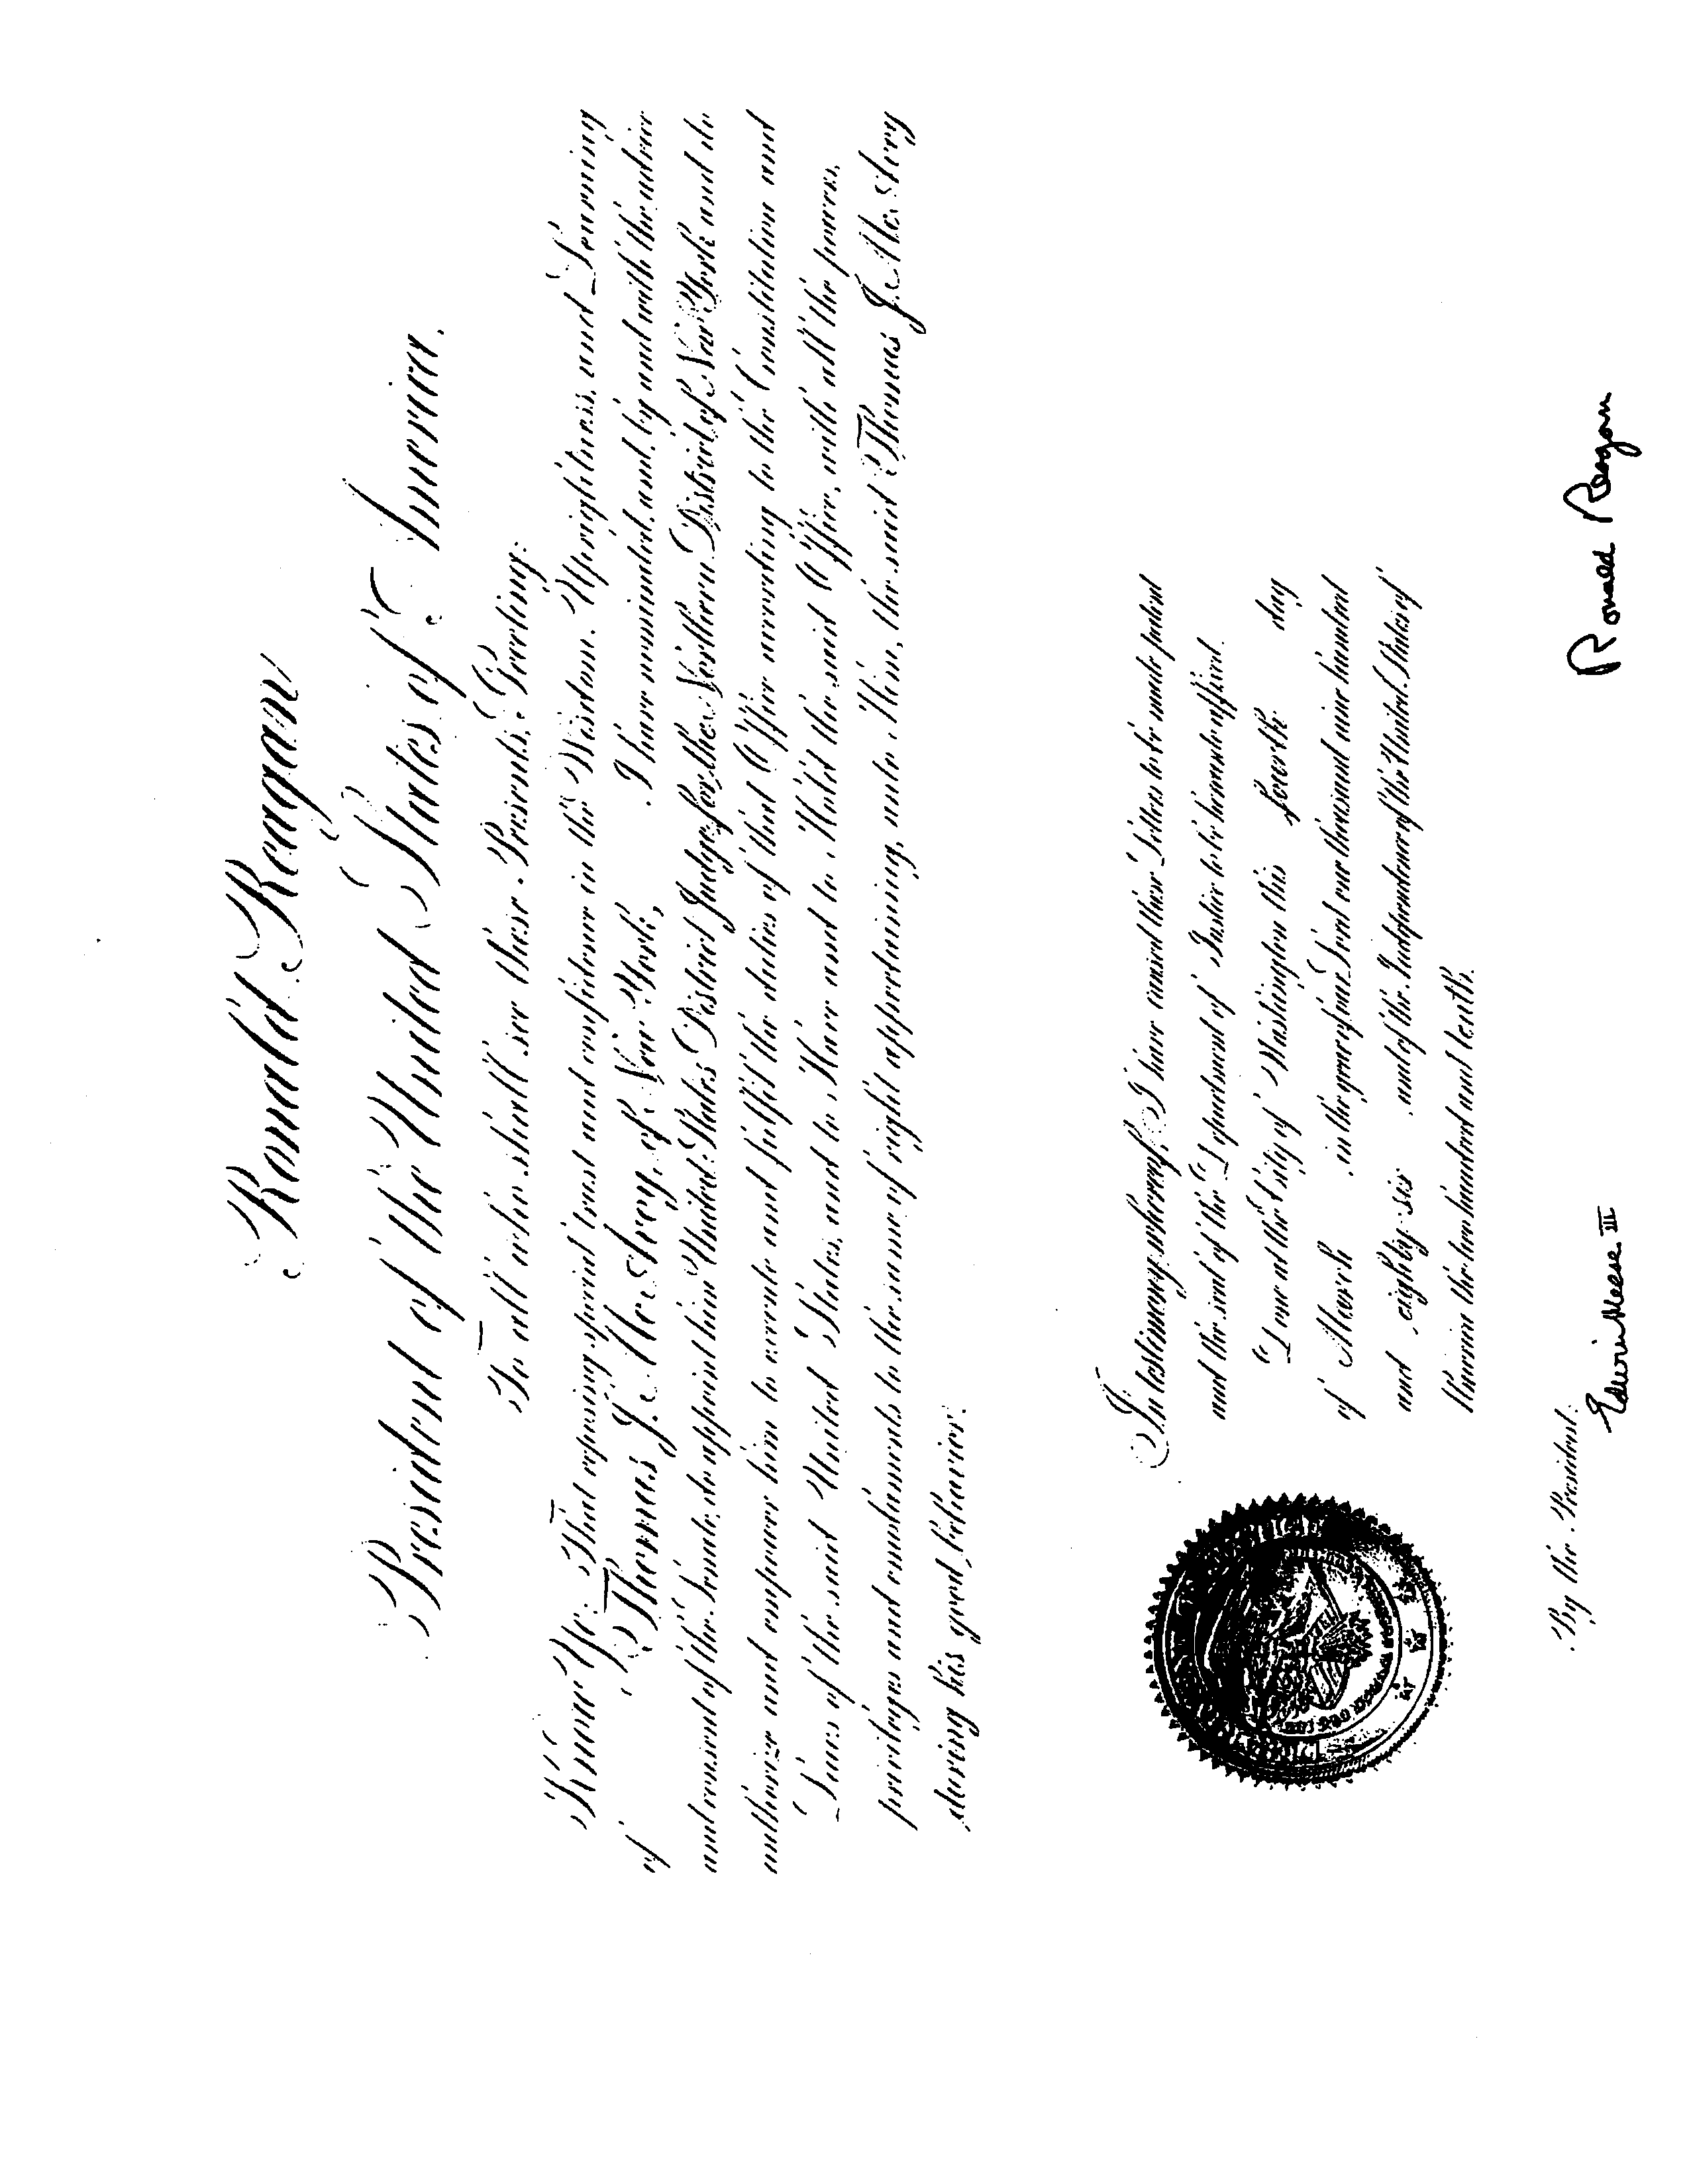 Ronald Reagan
President of the United States of America.
To all who shall see these Presents, Greeting:
Know Ye: That reposing special trust and confidence in the Wisdom, Uprightness, and Learning
of Thomas J. McAvoy, of New York, I have nominated, and, by and with the advice
and consent of the Senate, do appoint him United States District Judge for the Northern District of New York and do
authorize and empower him to execute and fulfil the duties of that Office according to the Constitution and
Laws of the said United States, and to Have and to Hold the said Office, with all the powers,
privileges and emoluments to the same of right appertaining, unto Him, the said Thomas J. McAvoy
during his good behavior.
In testimony whereof, I have caused these Letters to be made patent
and the seal of the Department of Justice to be hereunto affixed.
Done at the City of Washington this fourth day
of March in the year of our Lord one thousand nine hundred
and eighty-six and of the Independence of the United States of
America the two hundred and tenth.
Ronald Reagan
By the President:
Edwin Meese III